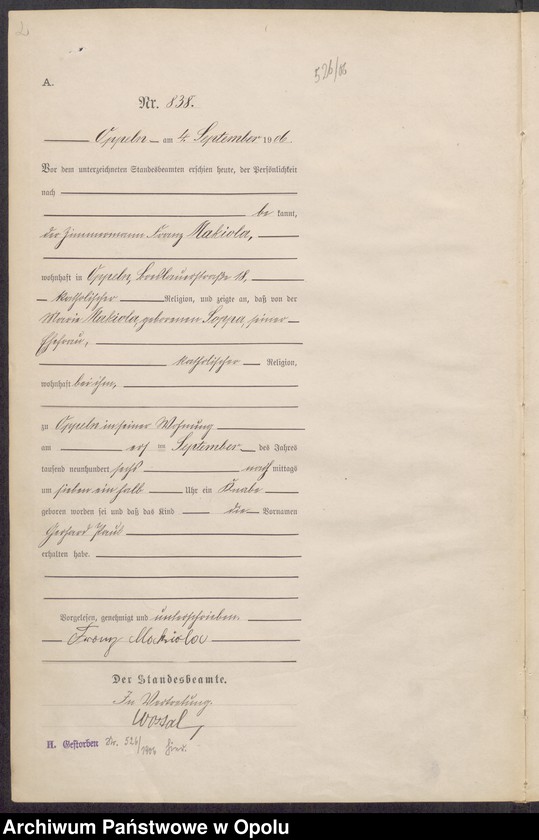 526/06
A.
Nr. 838.
Oppeln am 4. September 1906.
Vor dem unterzeichneten Standesbeamten erschien heute, der Persönlichkeit
nach
be kannt,
der Zimmermann Franz Makiola,
wohnhaft in Oppeln, Breslauerstraße 18,
katholischer Religion, und zeigte an, daß von der
Marie Makiola, geborenen Soppa, seiner
Ehefrau,
katholischer Religion,
wohnhaft bei ihm,
zu Oppeln in seiner Wohnung
am September des Jahres
tausend neunhundert sechs nach mittags
um sieben ein halb Uhr ein Knabe
geboren worden sei und daß das Kind die Vornamen
Gerhard Paul
erhalten habe.
Vorgelesen, genehmigt und unterschrieben.
Franz Makiola
Der Standesbeamte.
In Vertretung.
Wossal
H. Gestorben Nr. 526/1906 hier.
Archiwum Państwowe w Opolu